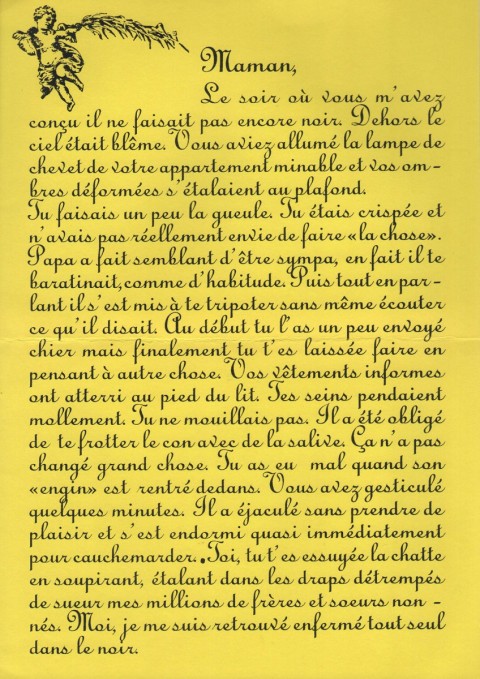 Maman,
Le soir où vous m'avez
conçu il ne faisait pas encore noir. Dehors le
ciel était blême. Vous aviez allumé la lampe de
chevet de votre appartement minable et vos om-
bres déformées s'étalaient au plafond.
Tu faisais un peu la gueule. Tu étais crispée et
n'avais pas réellement envie de faire «la chose».
Papa a fait semblant d'être sympa, en fait il te
baratinait, comme d'habitude. Puis tout en par-
lant il s'est mis à te tripoter sans même écouter
ce qu'il disait. Au début tu l'as un peu envoyé
chier mais finalement tu t'es laissée faire en
pensant à autre chose. Vos vêtements informes
ont atterri au pied du lit. Tes seins pendaient
mollement. Tu ne mouillais pas. Il a été obligé
de te frotter le con avec de la salive. Ça n'a pas
changé grand chose. Tu as eu mal quand son
«engin» est rentré dedans. Vous avez gesticulé
quelques minutes. Il a éjaculé sans prendre de
plaisir et s'est endormi quasi immédiatement
pour cauchemarder. Toi, tu t'es essuyée la chatte
en soupirant, étalant dans les draps détrempés
de sueur mes millions de frères et soeurs non-
nés. Moi, je me suis retrouvé enfermé tout seul
dans le noir.